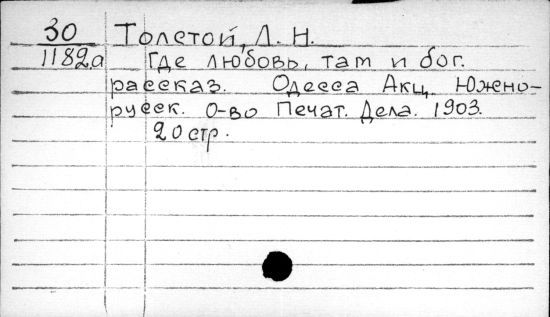 30 Толстой, Л. Н.
1182а Где любовь, там и бог.
рассказ. Одесса Акц. Южно-
русск. О-во Печат. Дела. 1903.
20 стр.